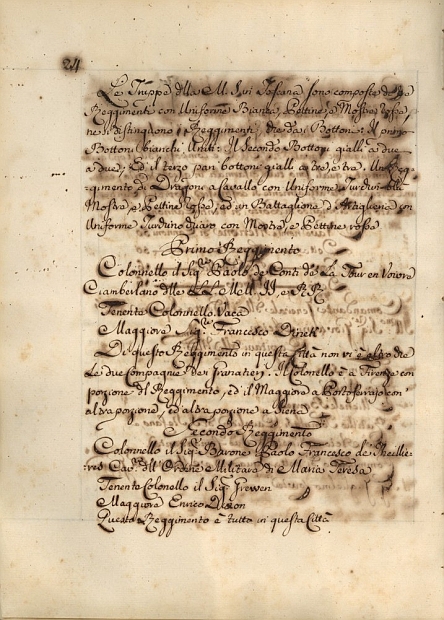 24
Le Truppe della M. S. in Toscana sono composte di tre
Reggimenti con Uniforme Bianca, Pettine, e Mostre rosse,
ne si distinguono i Reggimenti, che da Bottoni: Il primo
Bottoni bianchi Uniti: Il Secondo Bottoni gialli a due
a due; Ed il terzo pan bottoni gialli a tre, e tre. Un Reg-
gimento di Dragoni a Cavallo con Uniforme Turchino
Mostre, e Pettine rosse, ed un Battaglione d'Artiglieria con
Uniforme Turchino chiaro con Mostre, e Pettine rosse
Primo Reggimento
Colonnello il Sig.re Paolo de Conti de La Tour en Voivre
Ciamberlano delle LL. MM. II. e RR.
Tenente Colonnello Vaca
Maggiore Sig.re Francesco
Di questo Reggimento in questa Città non vi è altro che
Le due Compagnie dei Granatieri. Il Colonello è a Firenze con
porzione del Reggimento, ed il Maggiore a Portoferraio con
altra porzione, ed altra porzione a Siena
Secondo Reggimento
Colonnello il Sig. Barone Paolo Francesco de
Cav.re dell Ordine Militare di Maria Teresa
Tenente Colonello il Sig. Grewen
Maggiore Enrico
Questo Reggimento è tutto in questa Città